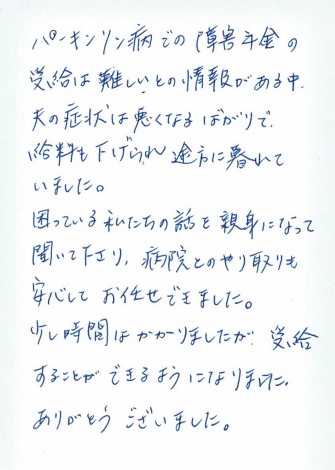 パーキンソン病での障害年金の
受給は難しいとの情報がある中、
夫の症状は悪くなるばかりで、
給料も下げられ途方に暮れて
いました。
困っている私たちの話を親身になって
聞いて下さり、病院とのやり取りも
安心してお任せできました。
少し時間はかかりましたが、受給
することができるようになりました。
ありがとうございました。